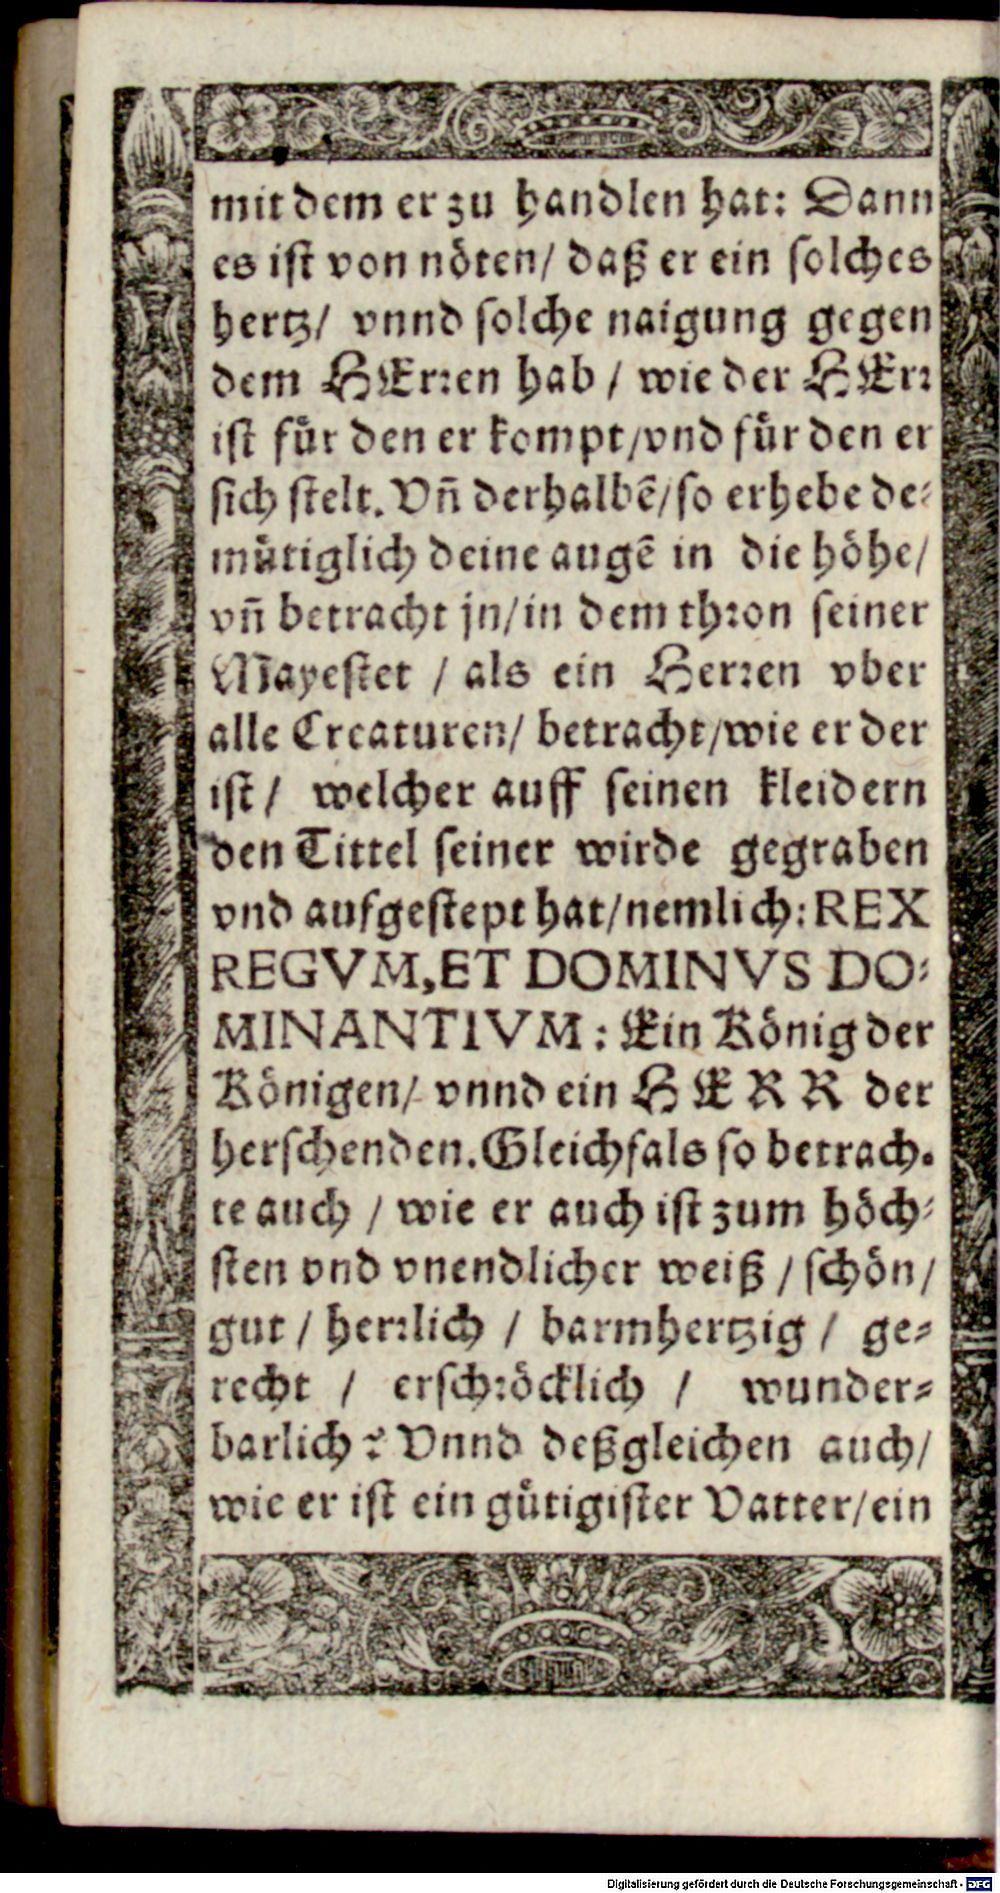 mit dem er zu handlen hat: Dann
es ist von nöten/ daß er ein solches
hertz/ vnnd solche naigung gegen
dem HErren hab / wie der HErr
ist für den er kompt/vnd für den er
sich stelt. Vñ derhalbẽ/so erhebe de⸗
mütiglich deine augẽ in die höhe/
vñ betracht jn/in dem thron seiner
Mayestet / als ein Herren vber
alle Creaturen/ betracht/wie er der
ist/ welcher auff seinen kleidern
den Tittel seiner wirde gegraben
vnd aufgestept hat/nemlich: REX
REGVM, ET DOMINVS DO⸗
MINANTIVM: Ein König der
Königen/ vnnd ein HERR der
herschenden. Gleichfals so betrach⸗
te auch / wie er auch ist zum höch⸗
sten vnd vnendlicher weiß / schön/
gut / herrlich / barmhertzig / ge⸗
recht / erschröcklich / wunder⸗
barlich? Vnnd deßgleichen auch/
wie er ist ein gütigister Vatter/ein
Digitalisierung gefördert durch die Deutsche Forschungsgemeinschaft - DFG